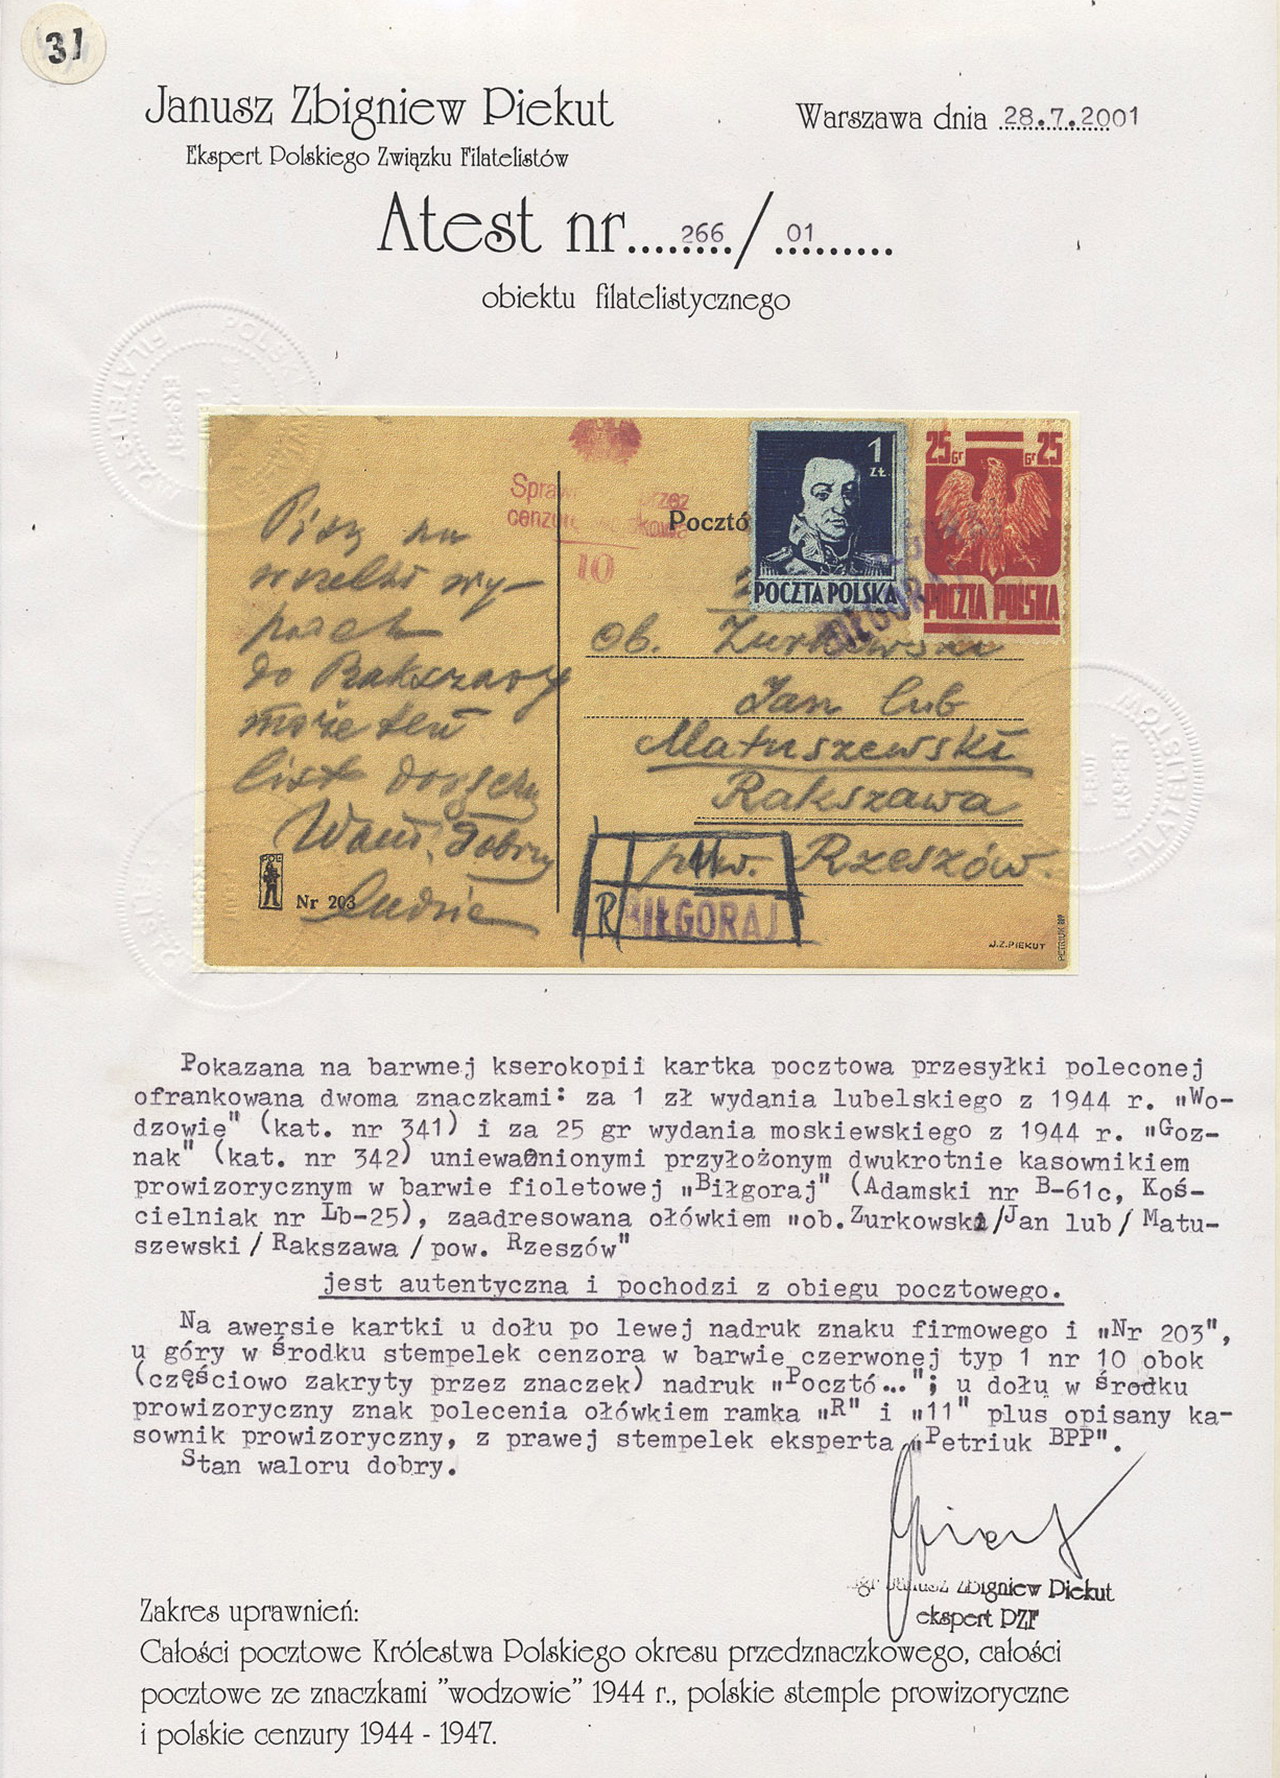 31
Janusz Zbigniew Piekut
Ekspert Polskiego Związku Filatelistów
Warszawa dnia 28.7.2001
Atest nr....266./.01.......
obiektu filatelistycznego
Sprawdzono przez
10
Pocztó
1 ZŁ
POCZTA POLSKA
25 Gr Gr 25
POCZTA POLSKA
Pisz na
wszelki wy-
padek
do Rakszawy
może ten
list
Wam, Dobrzy
ludzie
Ob. Żurkowski
Jan lub
Matuszewski
Rakszawa
pow. Rzeszów.
11
R BIŁGORAJ
POL
Nr 203
J.Z.PIEKUT
PETRIUK BPP
POLSKI ZWIĄZEK FILATELISTÓW
EKSPERT
Pokazana na barwnej kserokopii kartka pocztowa przesyłki poleconej
ofrankowana dwoma znaczkami: za 1 zł wydania lubelskiego z 1944 r. "Wo-
dzowie" (kat. nr 341) i za 25 gr wydania moskiewskiego z 1944 r. "Goz-
nak" (kat. nr 342) uniewa0nionymi przyłożonym dwukrotnie kasownikiem
prowizorycznym w barwie fioletowej "Biłgoraj" (Adamski nr B-61c, Koś-
cielniak nr Lb-25), zaadresowana ołówkiem "ob.Zurkowski/Jan lub/ Matu-
szewski/ Rakszawa / pow. Rzeszów"
jest autentyczna i pochodzi z obiegu pocztowego.
Na awersie kartki u dołu po lewej nadruk znaku firmowego i "Nr 203",
u góry w środku stempelek cenzora w barwie czerwonej typ 1 nr 10 obok
(częściowo zakryty przez znaczek) nadruk "Pocztó..."; u dołu w środku
prowizoryczny znak polecenia ołówkiem ramka "R" i "11" plus opisany ka-
sownik prowizoryczny, z prawej stempelek eksperta "Petriuk BPP".
Stan waloru dobry.
mgr Janusz Zbigniew Piekut
ekspert PZF
Zakres uprawnień:
Całości pocztowe Królestwa Polskiego okresu przedznaczkowego, całości
pocztowe ze znaczkami "wodzowie" 1944 r., polskie stemple prowizoryczne
i polskie cenzury 1944 - 1947.